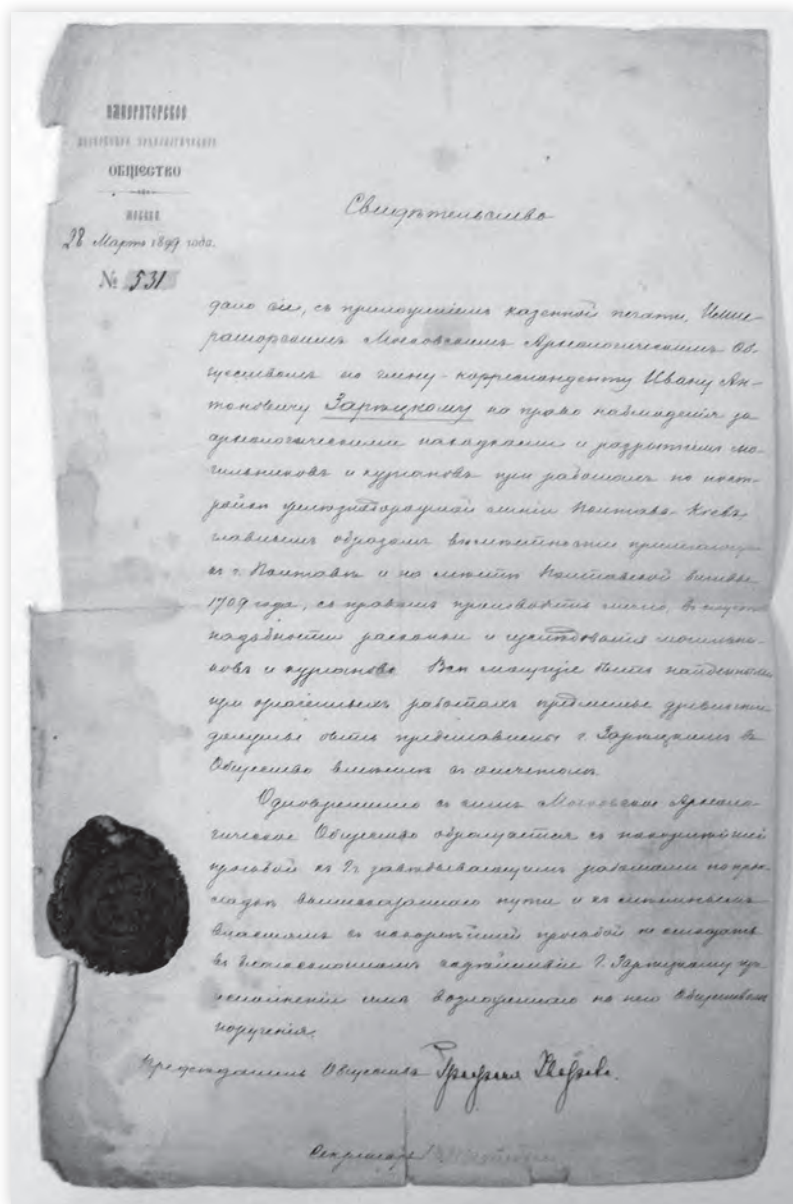 ИМПЕРАТОРСКОЕ
МОСКОВСКОЕ АРХЕОЛОГИЧЕСКОЕ
ОБЩЕСТВО
МОСКВА
28 Марта 1899 года.
№ 531
Свидѣтельство
дано сіе, съ приложеніемъ казенной печати, Импе-
раторскимъ Московскимъ Археологическимъ Об-
ществомъ члену-корреспонденту Ивану Ан-
тоновичу Зарѣцкому на право наблюденія за
археологическими находками и разрытіемъ мо-
гильниковъ и кургановъ при работахъ по пост-
ройкѣ желѣзнодорожной линіи Полтава-Кіевъ,
главнымъ образомъ въ мѣстности
къ г. Полтавѣ и на мѣстѣ Полтавской битвы
1709 года, съ правомъ производить
надобности раскопки и изслѣдованія могильни-
ковъ и кургановъ. Всѣ могущіе быть найденными
при означенныхъ работахъ предметы древности
должны быть представлены г. Зарѣцкимъ въ
Общество вмѣстѣ съ отчетомъ.
Одновременно съ симъ Московское Археоло-
гическое Общество обращается съ покорнѣйшей
просьбой къ Гг. завѣдывающимъ работами по прок-
ладкѣ вышесказаннаго пути и къ мѣстнымъ
властямъ съ покорнѣйшей просьбой не отказать
въ благосклонномъ содѣйствіи Г. Зарѣцкому при
исполненіи имъ возложеннаго на него Обществомъ
порученія.
Предсѣдатель Общества Графиня Уварова.
Секретарь